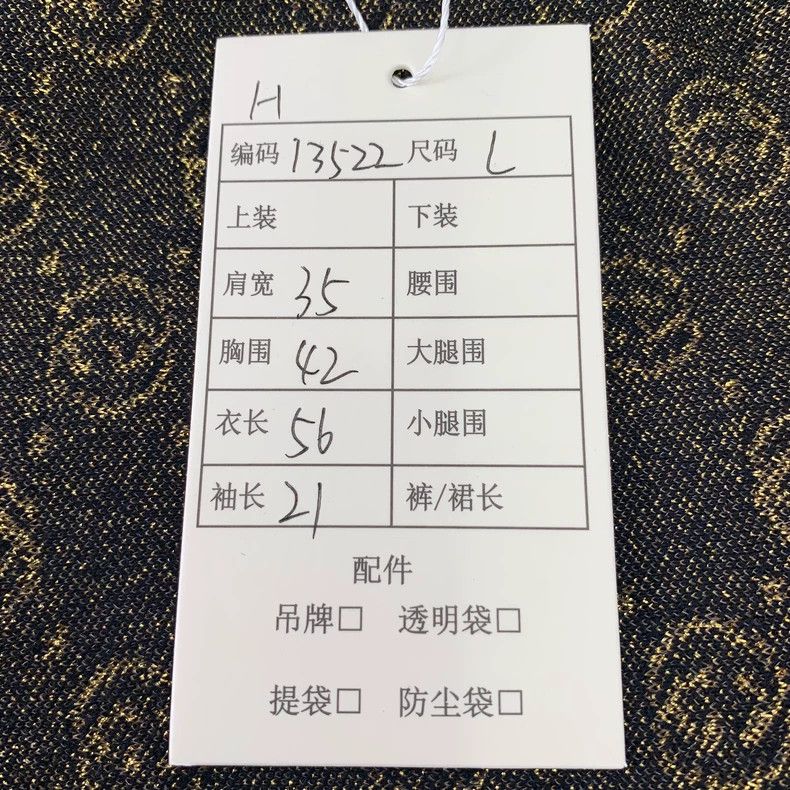 H
编码 13522 尺码 L
上装 下装
肩宽 35 腰围
胸围 42 大腿围
衣长 56 小腿围
袖长 21 裤/裙长
配件
吊牌□ 透明袋□
提袋□ 防尘袋□